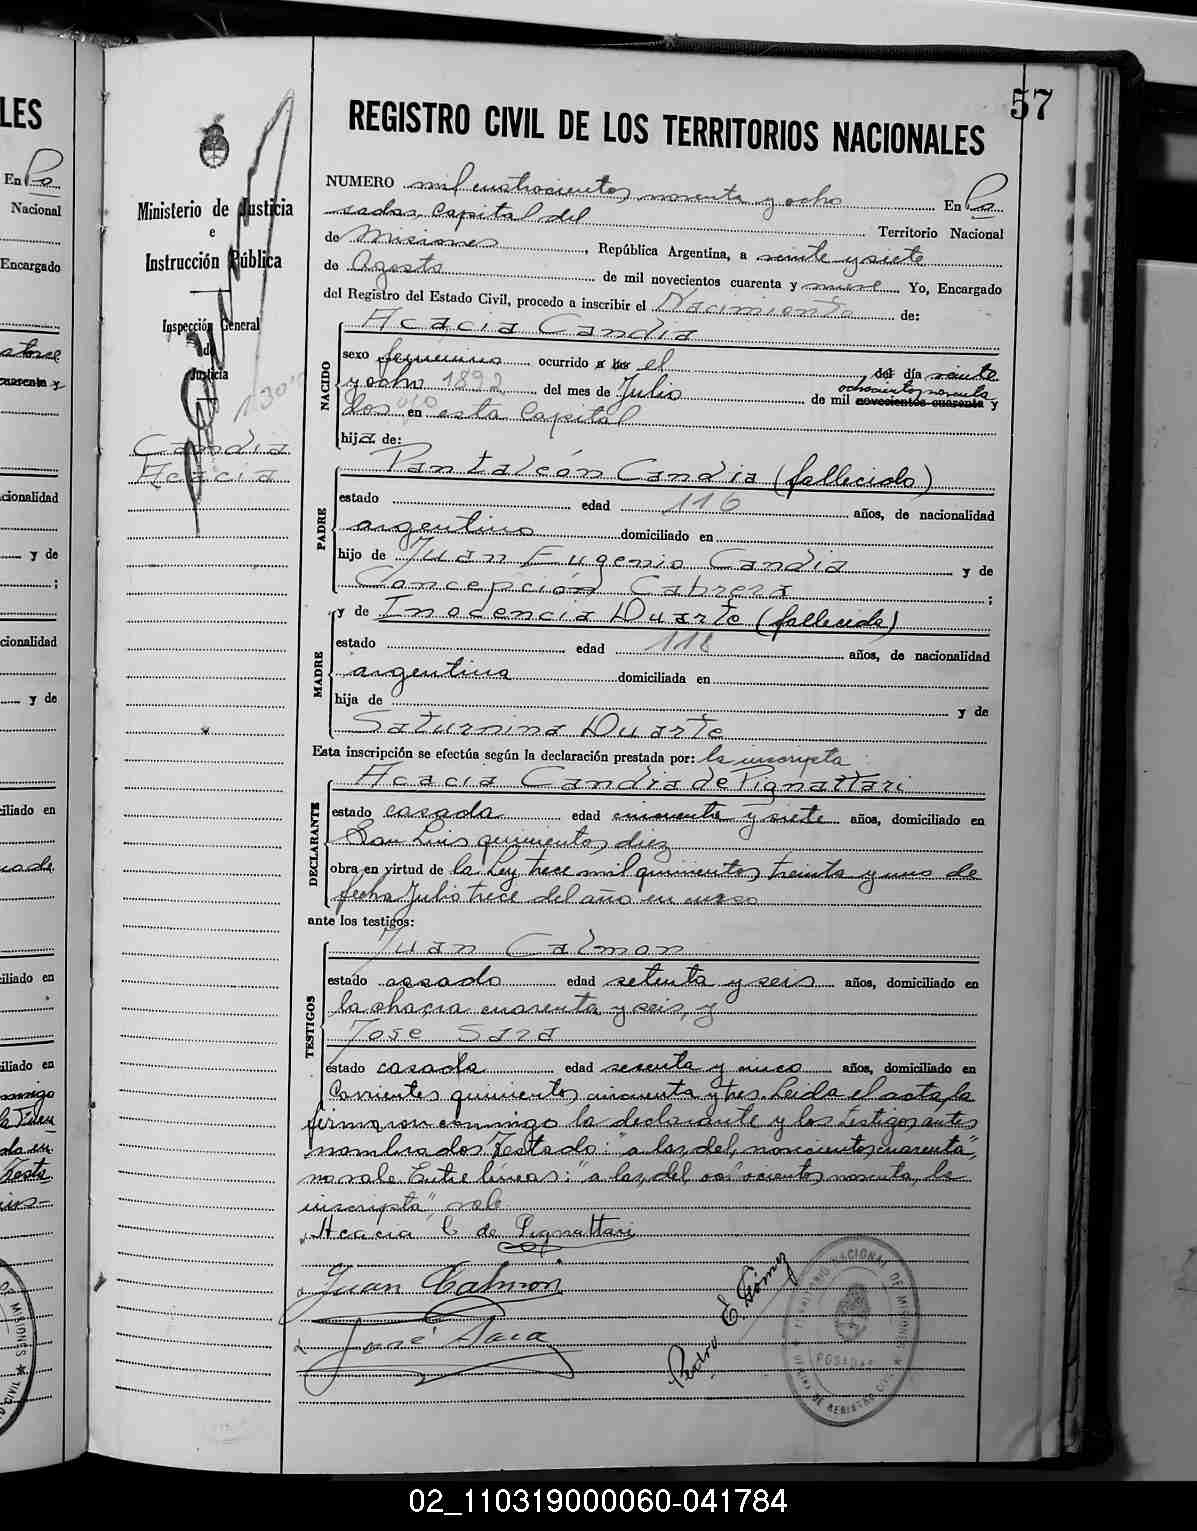 57
REGISTRO CIVIL DE LOS TERRITORIOS NACIONALES
Ministerio de Justicia
e
Instrucción Pública
Inspección General
de
Justicia
Candia
Acacia
NUMERO mil cuatrocientos noventa y ocho En Po
sadas, Capital del Territorio Nacional
de Misiones, República Argentina, a veinte y siete
de Agosto de mil novecientos cuarenta y nueve Yo, Encargado
del Registro del Estado Civil, procedo a inscribir el Nacimiento de:
NACIDO
Acacia Candia
sexo femenino ocurrido a las el del día veinte
y ocho 1892 del mes de Julio de mil novecientos cuarenta ochocientos noventa y
dos en esta Capital
hija de:
PADRE
Pantaleón Candia (fallecido)
estado edad 116 años, de nacionalidad
argentino domiciliado en
hijo de Juan Eugenio Candia y de
Concepción Cabrera ;
MADRE
y de Inocencia Duarte (fallecida)
estado edad 118 años, de nacionalidad
argentina domiciliada en
hija de y de
Saturnina Duarte
Esta inscripción se efectúa según la declaración prestada por: la inscripta
DECLARANTE
Acacia Candia de Pignattari
estado casada edad cincuenta y siete años, domiciliado en
San Luis quinientos diez
obra en virtud de la Ley trece mil quinientos treinta y uno de
fecha Julio trece del año en curso
ante los testigos:
TESTIGOS
Juan Calmon
estado casado edad setenta y seis años, domiciliado en
la chacra cuarenta y seis, y
Jose Sara
estado casado edad sesenta y cinco años, domiciliado en
Corrientes quinientos cincuenta y tres. Leida el acta, la
firmaron conmigo la declarante y los testigos antes
nombrados. Testado: "a las, del, novecientos cuarenta",
no vale. Entre líneas: "a las, del, ochocientos noventa, la
inscripta", vale.
Acacia C de Pignattari
Juan Calmon
José Sara
Pedro E. Gómez
TERRITORIO NACIONAL DE MISIONES
POSADAS
DE REGISTRO CIVIL
02_110319000060-041784